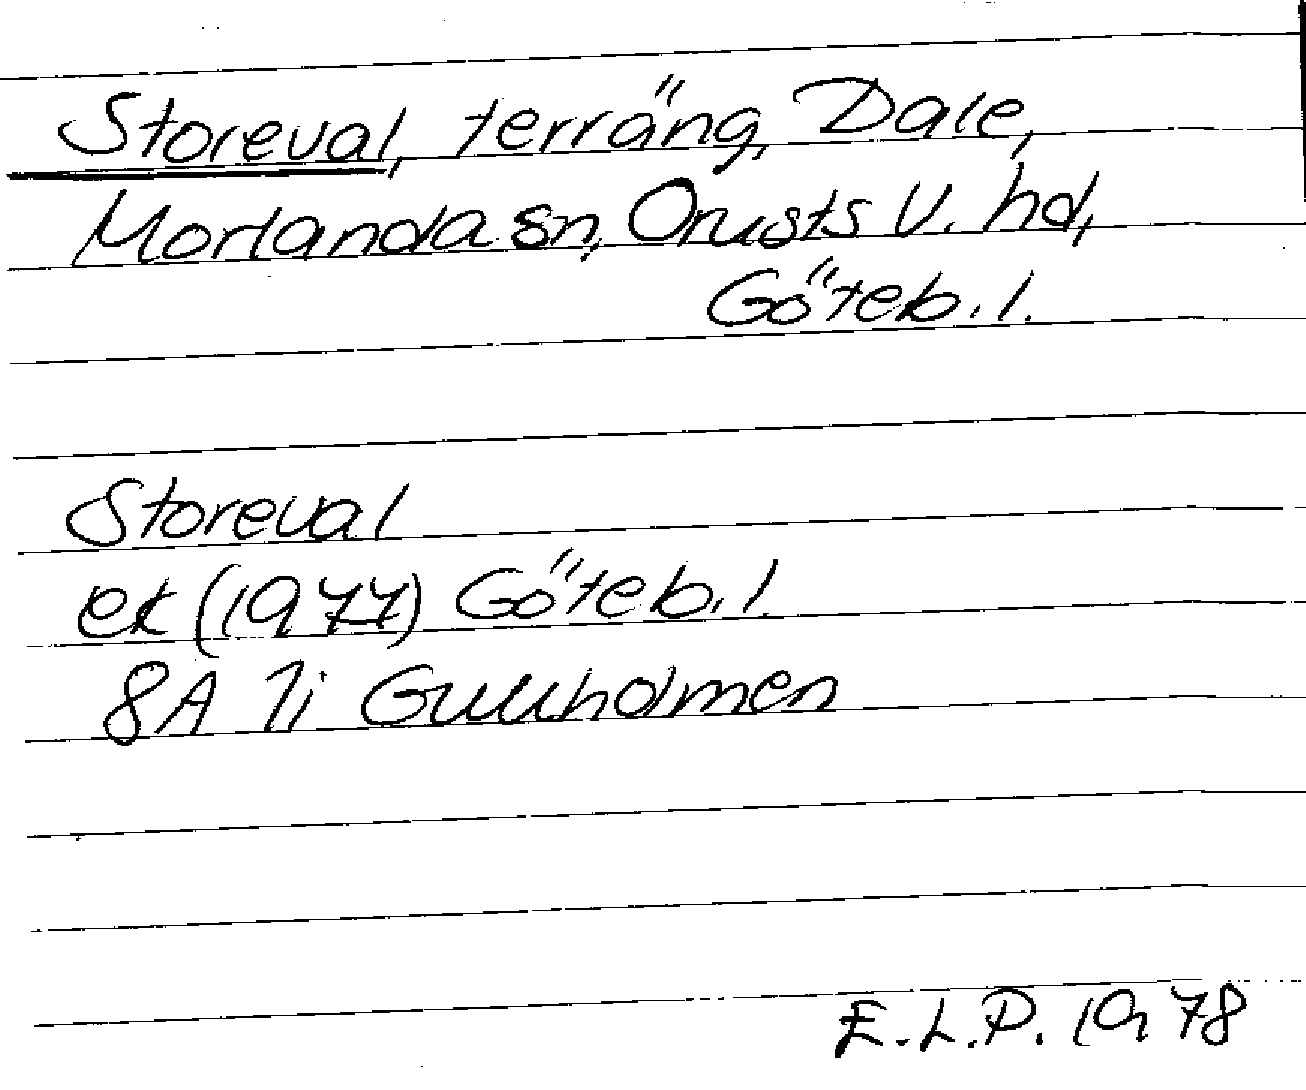 Storeval, terräng, Dale,
Morlanda sn, Orusts V. hd,
Göteb. l.
Storeval
ek (1977) Göteb. l.
8A 7i Gullholmen
E.L.P. 1978